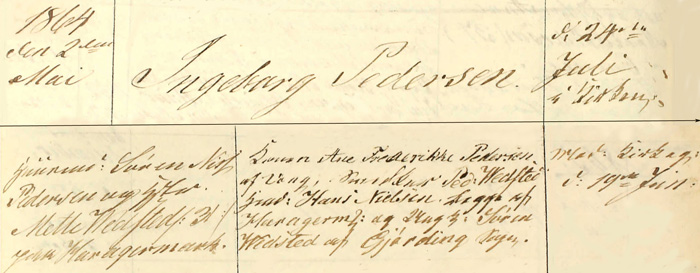 1864
den 2den
Mai
Ingeborg Pedersen.
d: 24de
Juli
i Kirken,
Søren Niels
Pedersen og
Mette Wedsted: 31
Haragermark.
Konen Ane Frederikke Pedersen
af Ped: Wedsted
Hans Nielsen. begge af
Haragerm: og Ungk: Søren
Wedsted af Gjørding Sogn.
Mod: Kirkeg:
d: 19de Juni